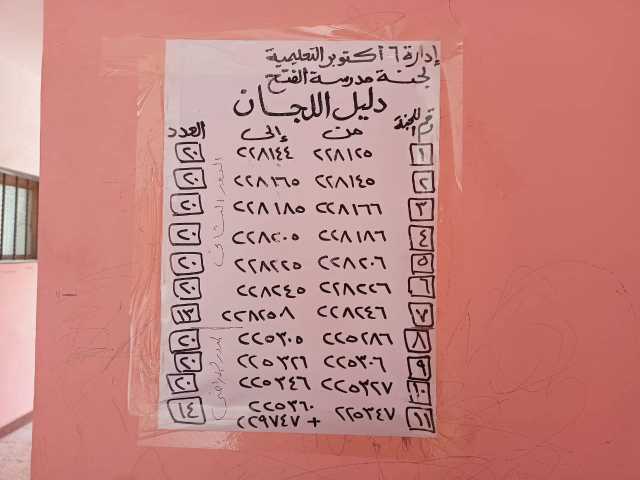 إدارة ٦ أكتوبر التعليمية
لجنة مدرسة الفتح
دليل اللجان
رقم اللجنة من إلى العدد
١ ٢٢٨١٢٥ ٢٢٨١٤٤ ٢٠
٢ ٢٢٨١٤٥ ٢٢٨١٦٥ ٢٠
٣ ٢٢٨١٦٦ ٢٢٨١٨٥ ٢٠
٤ ٢٢٨١٨٦ ٢٢٨٢٠٥ ٢٠
٥ ٢٢٨٢٠٦ ٢٢٨٢٢٥ ٢٠
٦ ٢٢٨٢٢٦ ٢٢٨٢٤٥ ٢٠
٧ ٢٢٨٢٤٦ ٢٢٨٢٥٨ ١٣
٨ ٢٢٥٢٨٦ ٢٢٥٣٠٥ ٢٠
٩ ٢٢٥٣٠٦ ٢٢٥٣٢٦ ٢٠
١٠ ٢٢٥٣٢٧ ٢٢٥٣٤٦ ٢٠
١١ ٢٢٥٣٤٧ ٢٢٥٣٦٠ ١٤
+ ٢٢٩٧٤٧
الدور الثاني